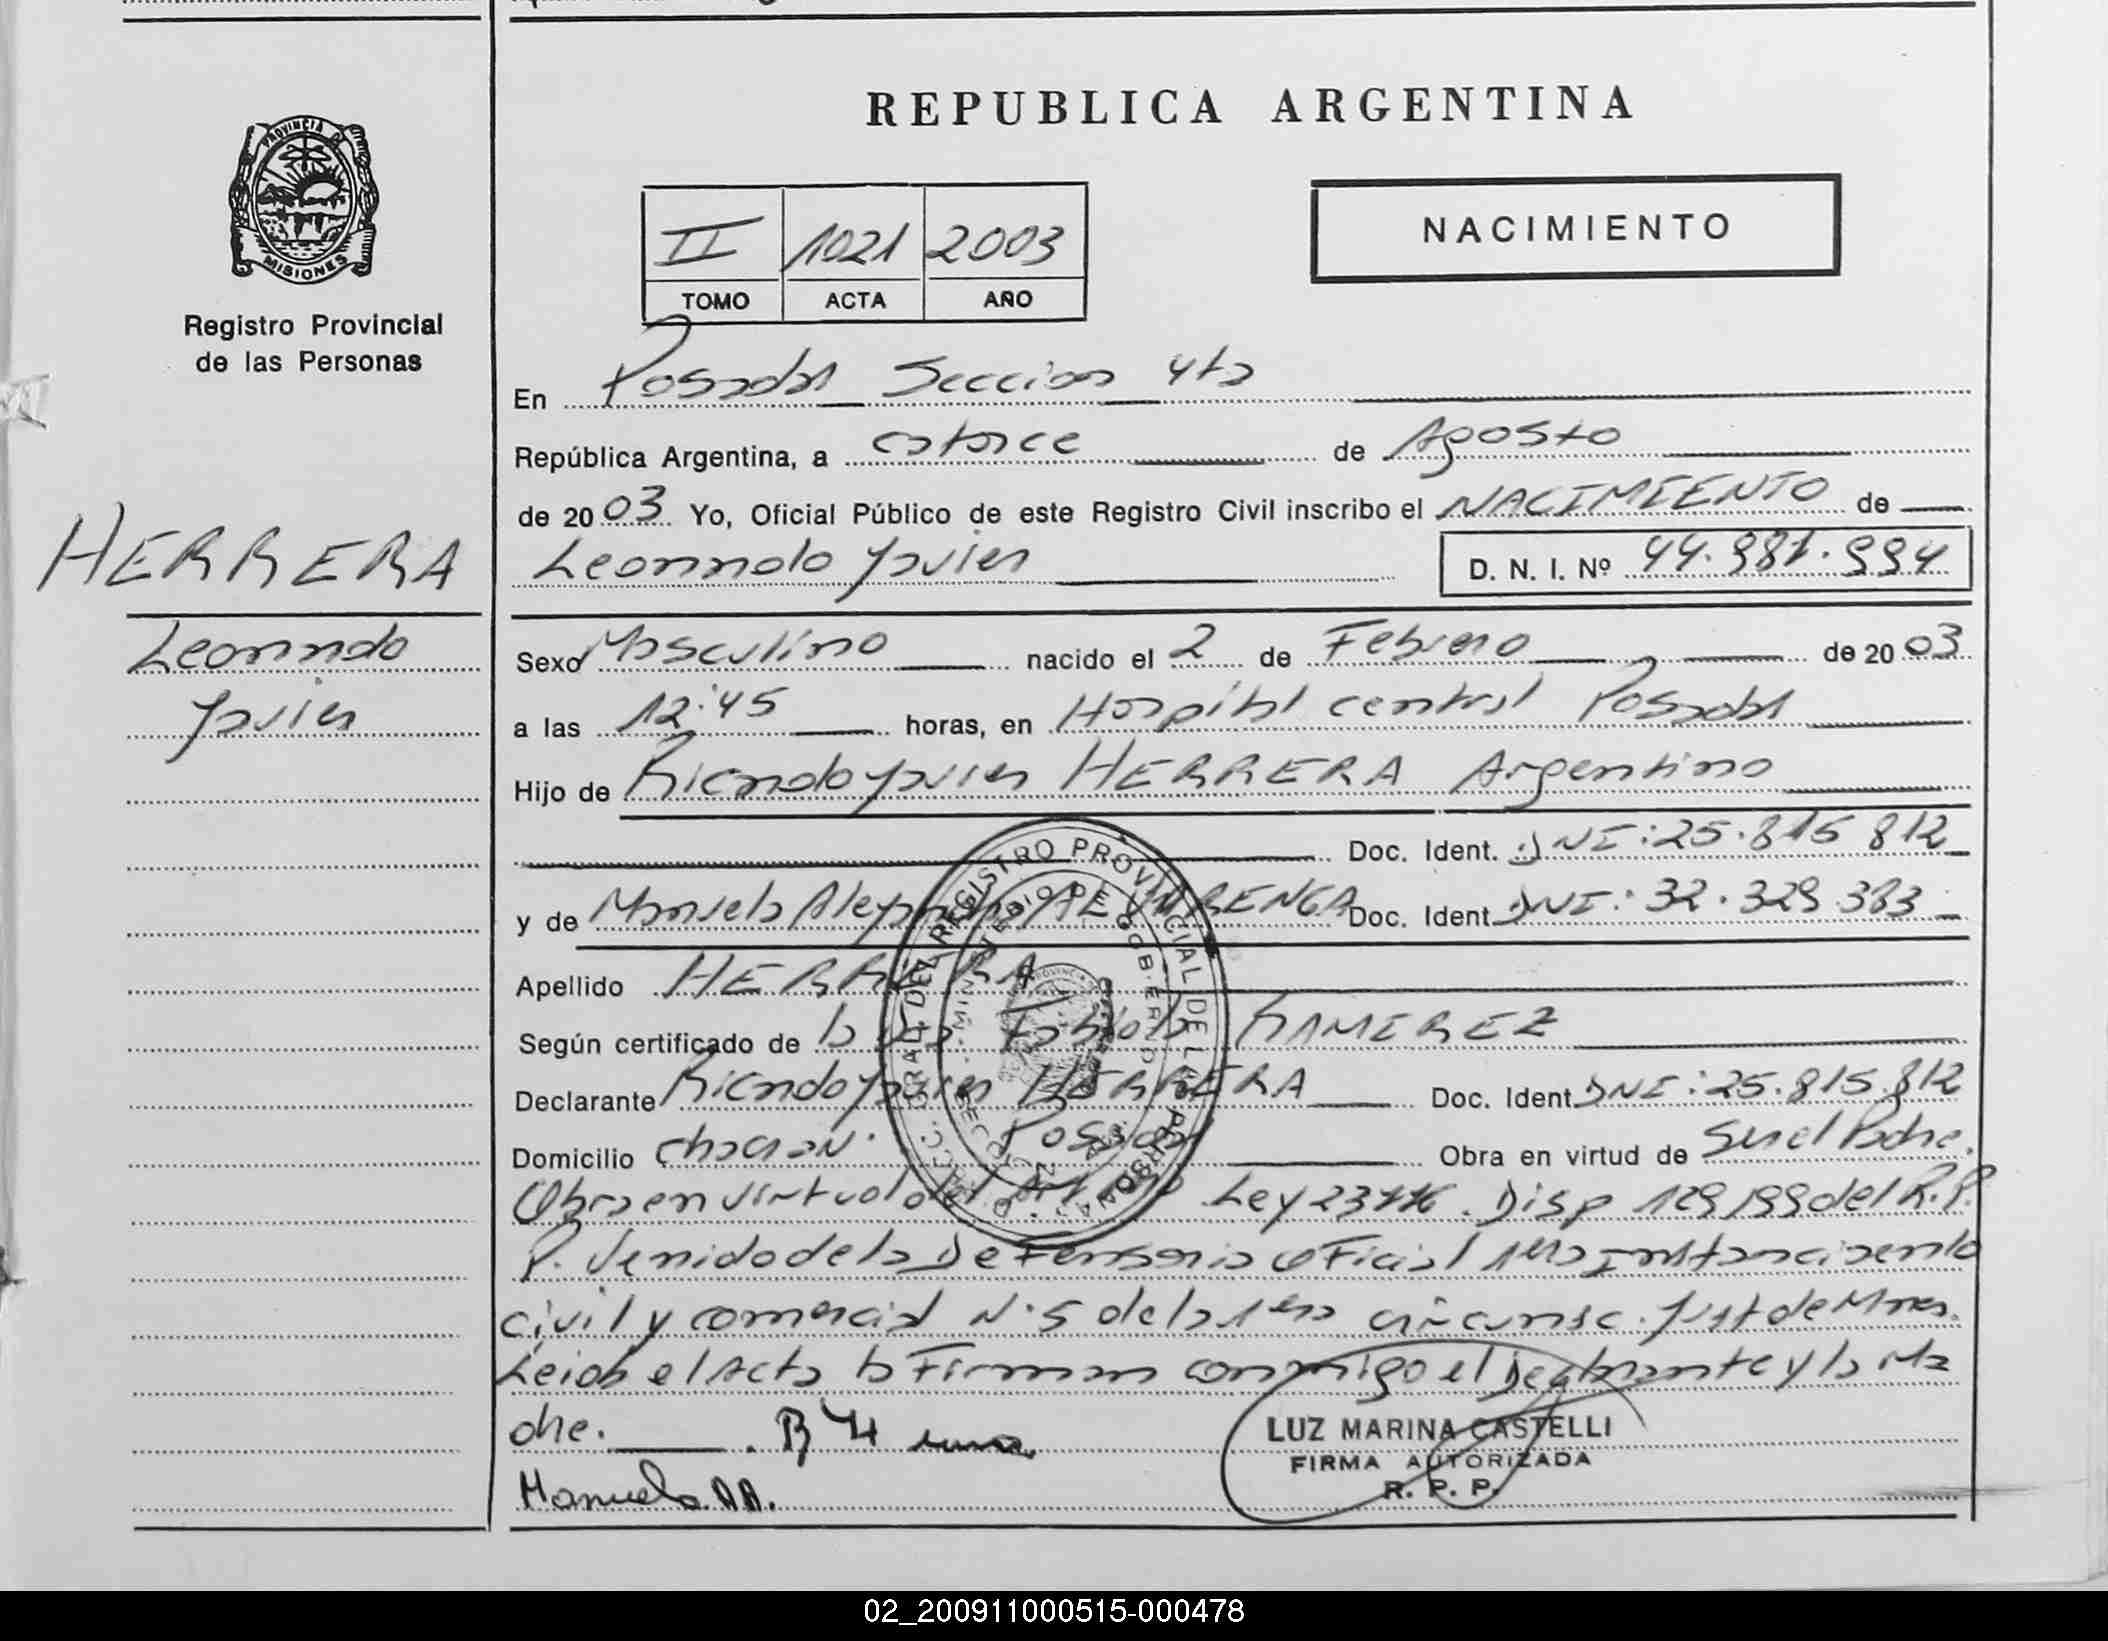 REPUBLICA ARGENTINA
PROVINCIA DE
MISIONES
Registro Provincial
de las Personas
NACIMIENTO
II 1021 2003
TOMO ACTA AÑO
En Posadas Seccion 4ta
República Argentina, a catorce de Agosto
de 2003 Yo, Oficial Público de este Registro Civil inscribo el NACIMIENTO de
Leonardo Javier D. N. I. Nº 44.981.994
HERRERA
Leonardo
Javier
Sexo Masculino nacido el 2 de Febrero de 2003
a las 12:45 horas, en Hospital central Posadas
Hijo de Ricardo Javier HERRERA Argentino
Doc. Ident. DNI: 25.815 812
y de Manuela Doc. Ident. DNI: 32.329.383
Apellido HERRERA
Según certificado de la Fabiola RAMIREZ
Declarante Ricardo Javier HERRERA Doc. Ident DNI: 25.815.812
Domicilio Posadas Obra en virtud de Ser el Padre.
Obra en virtud del Ley 23776. Disp 129/99 del R.P.
P. Venido de la Defensoria Oficial 1era Instancia en lo
civil y comercial N.5 de la 1era circunsc. Just de Mnes.
Leida el Acta la Firman conmigo el Declarante y la Ma
dre.
Manuela A.A.
LUZ MARINA CASTELLI
FIRMA AUTORIZADA
R. P. P.
DIRECC. GRAL. DEL REGISTRO PROVINCIAL DE LAS PERSONAS
MINISTERIO DE GOBIERNO
02_200911000515-000478